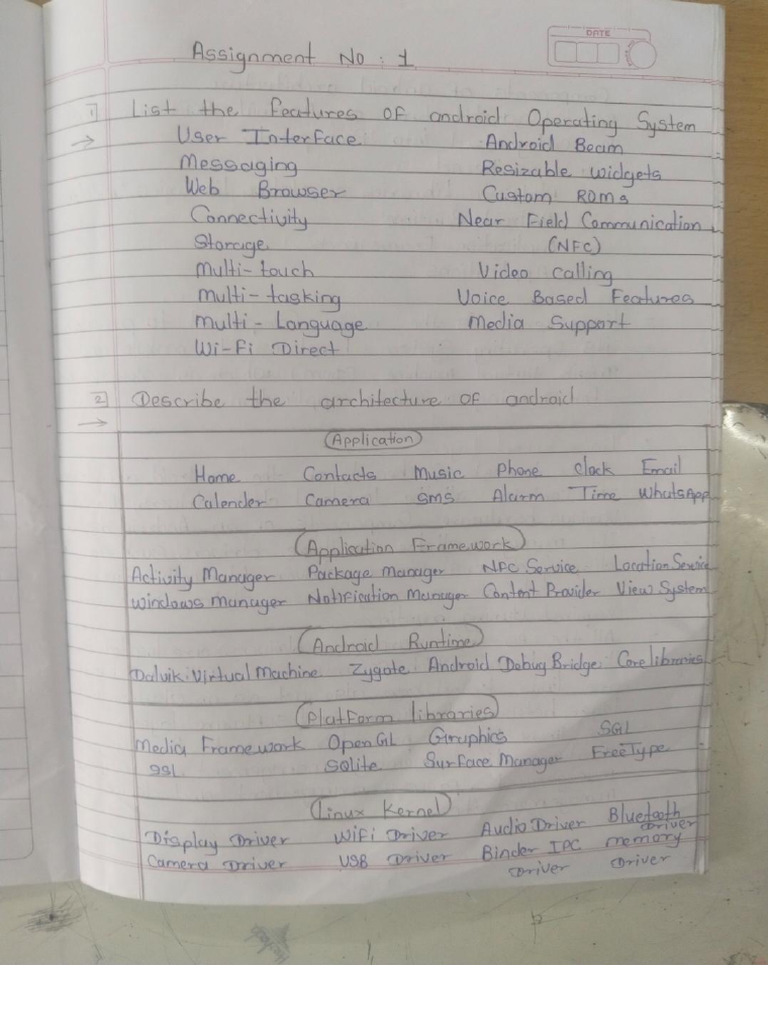 DATE
Assignment No : 1
1] List the features of android Operating System
→ User Interface Android Beam
Messaging Resizable widgets
Web Browser Custom ROMs
Connectivity Near Field Communication
Storage (NFC)
Multi-touch Video calling
Multi-tasking Voice Based Features
Multi-Language Media Support
Wi-Fi Direct
2] Describe the architecture of android
→
Application
Home Contacts Music Phone Clock Email
Calender Camera SMS Alarm Time WhatsApp
Application Framework
Activity Manager Package Manager NFC Service Location Service
Windows Manager Notification Manager Content Provider View System
Android Runtime
Dalvik Virtual Machine Zygote Android Debug Bridge Core libraries
Platform libraries
Media Framework OpenGL Graphics SGL
SSL SQlite Surface Manager FreeType
Linux Kernel
Display Driver WiFi Driver Audio Driver Bluetooth Driver
Camera Driver USB Driver Binder IPC Driver memory Driver